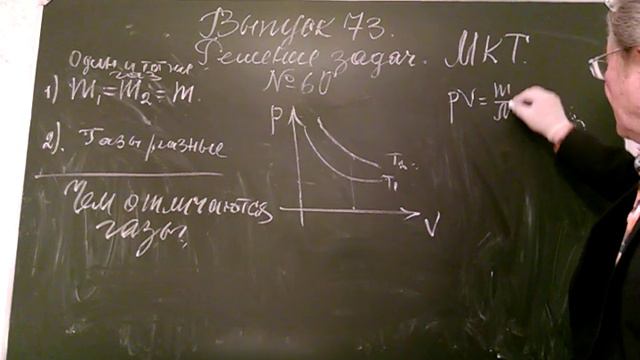 Выпуск 73.
Решение задач. МКТ.
№60
Один и тот же
газ
1) m₁=m₂=m.
2). Газы разные
Чем отличаются
газы?
P
T₂
T₁
V
pV=m/M